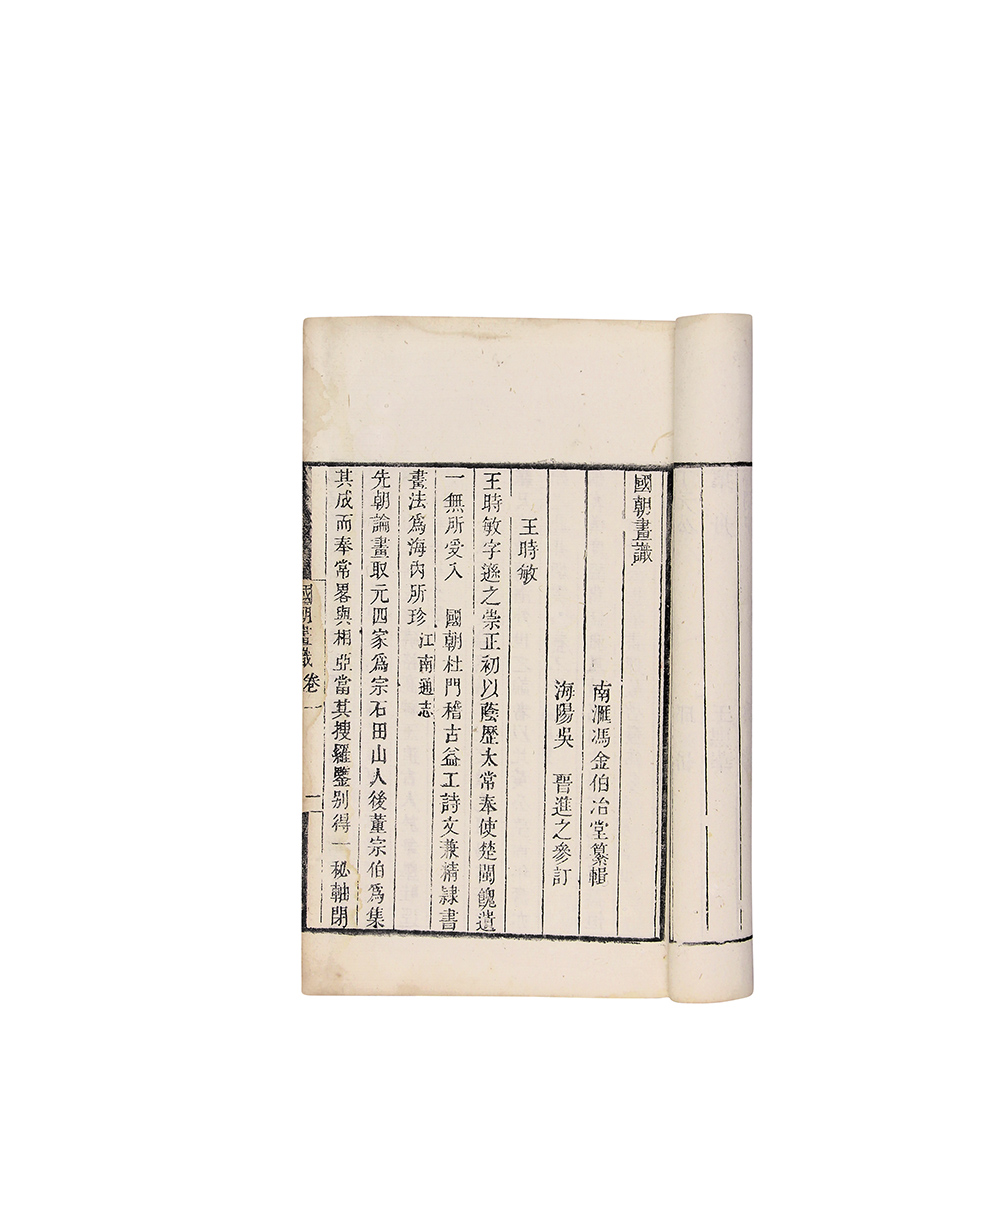 國朝畫識
南滙馮金伯冶堂纂輯
海陽吳　晋進之參訂
王時敏
王時敏字遜之崇正初以蔭歷太常奉使楚閩餽遺
一無所受入　國朝杜門稽古益工詩文兼精隷書
畫法爲海內所珍江南通志
先朝論畫取元四家爲宗石田山人後董宗伯爲集
其成而奉常畧與相亞當其搜羅鑒别得一秘軸閉
國朝畫識　卷一　一